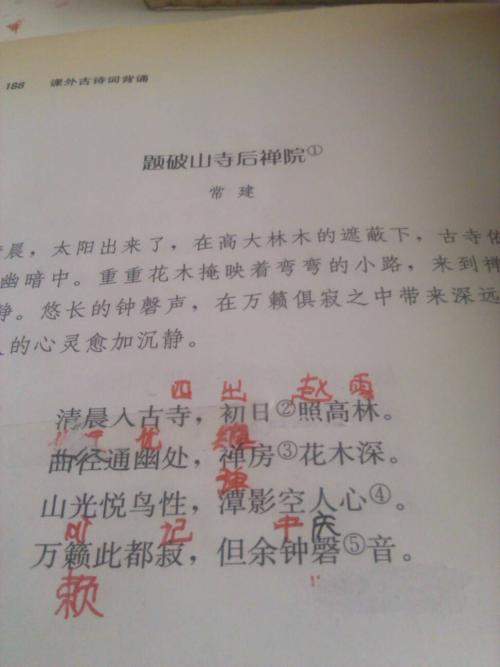 188 课外古诗词背诵
题破山寺后禅院①
常 建
晨，太阳出来了，在高大林木的遮蔽下，古寺
幽暗中。重重花木掩映着弯弯的小路，来到禅
静。悠长的钟磬声，在万籁俱寂之中带来深远
的心灵愈加沉静。
四 出 赵 雨
清晨入古寺，初日②照高林。
工 优
曲径通幽处，禅房③花木深。
山光悦鸟性，潭影空人心④。
记 中 庆
万籁此都寂，但余钟磬⑤音。
赖